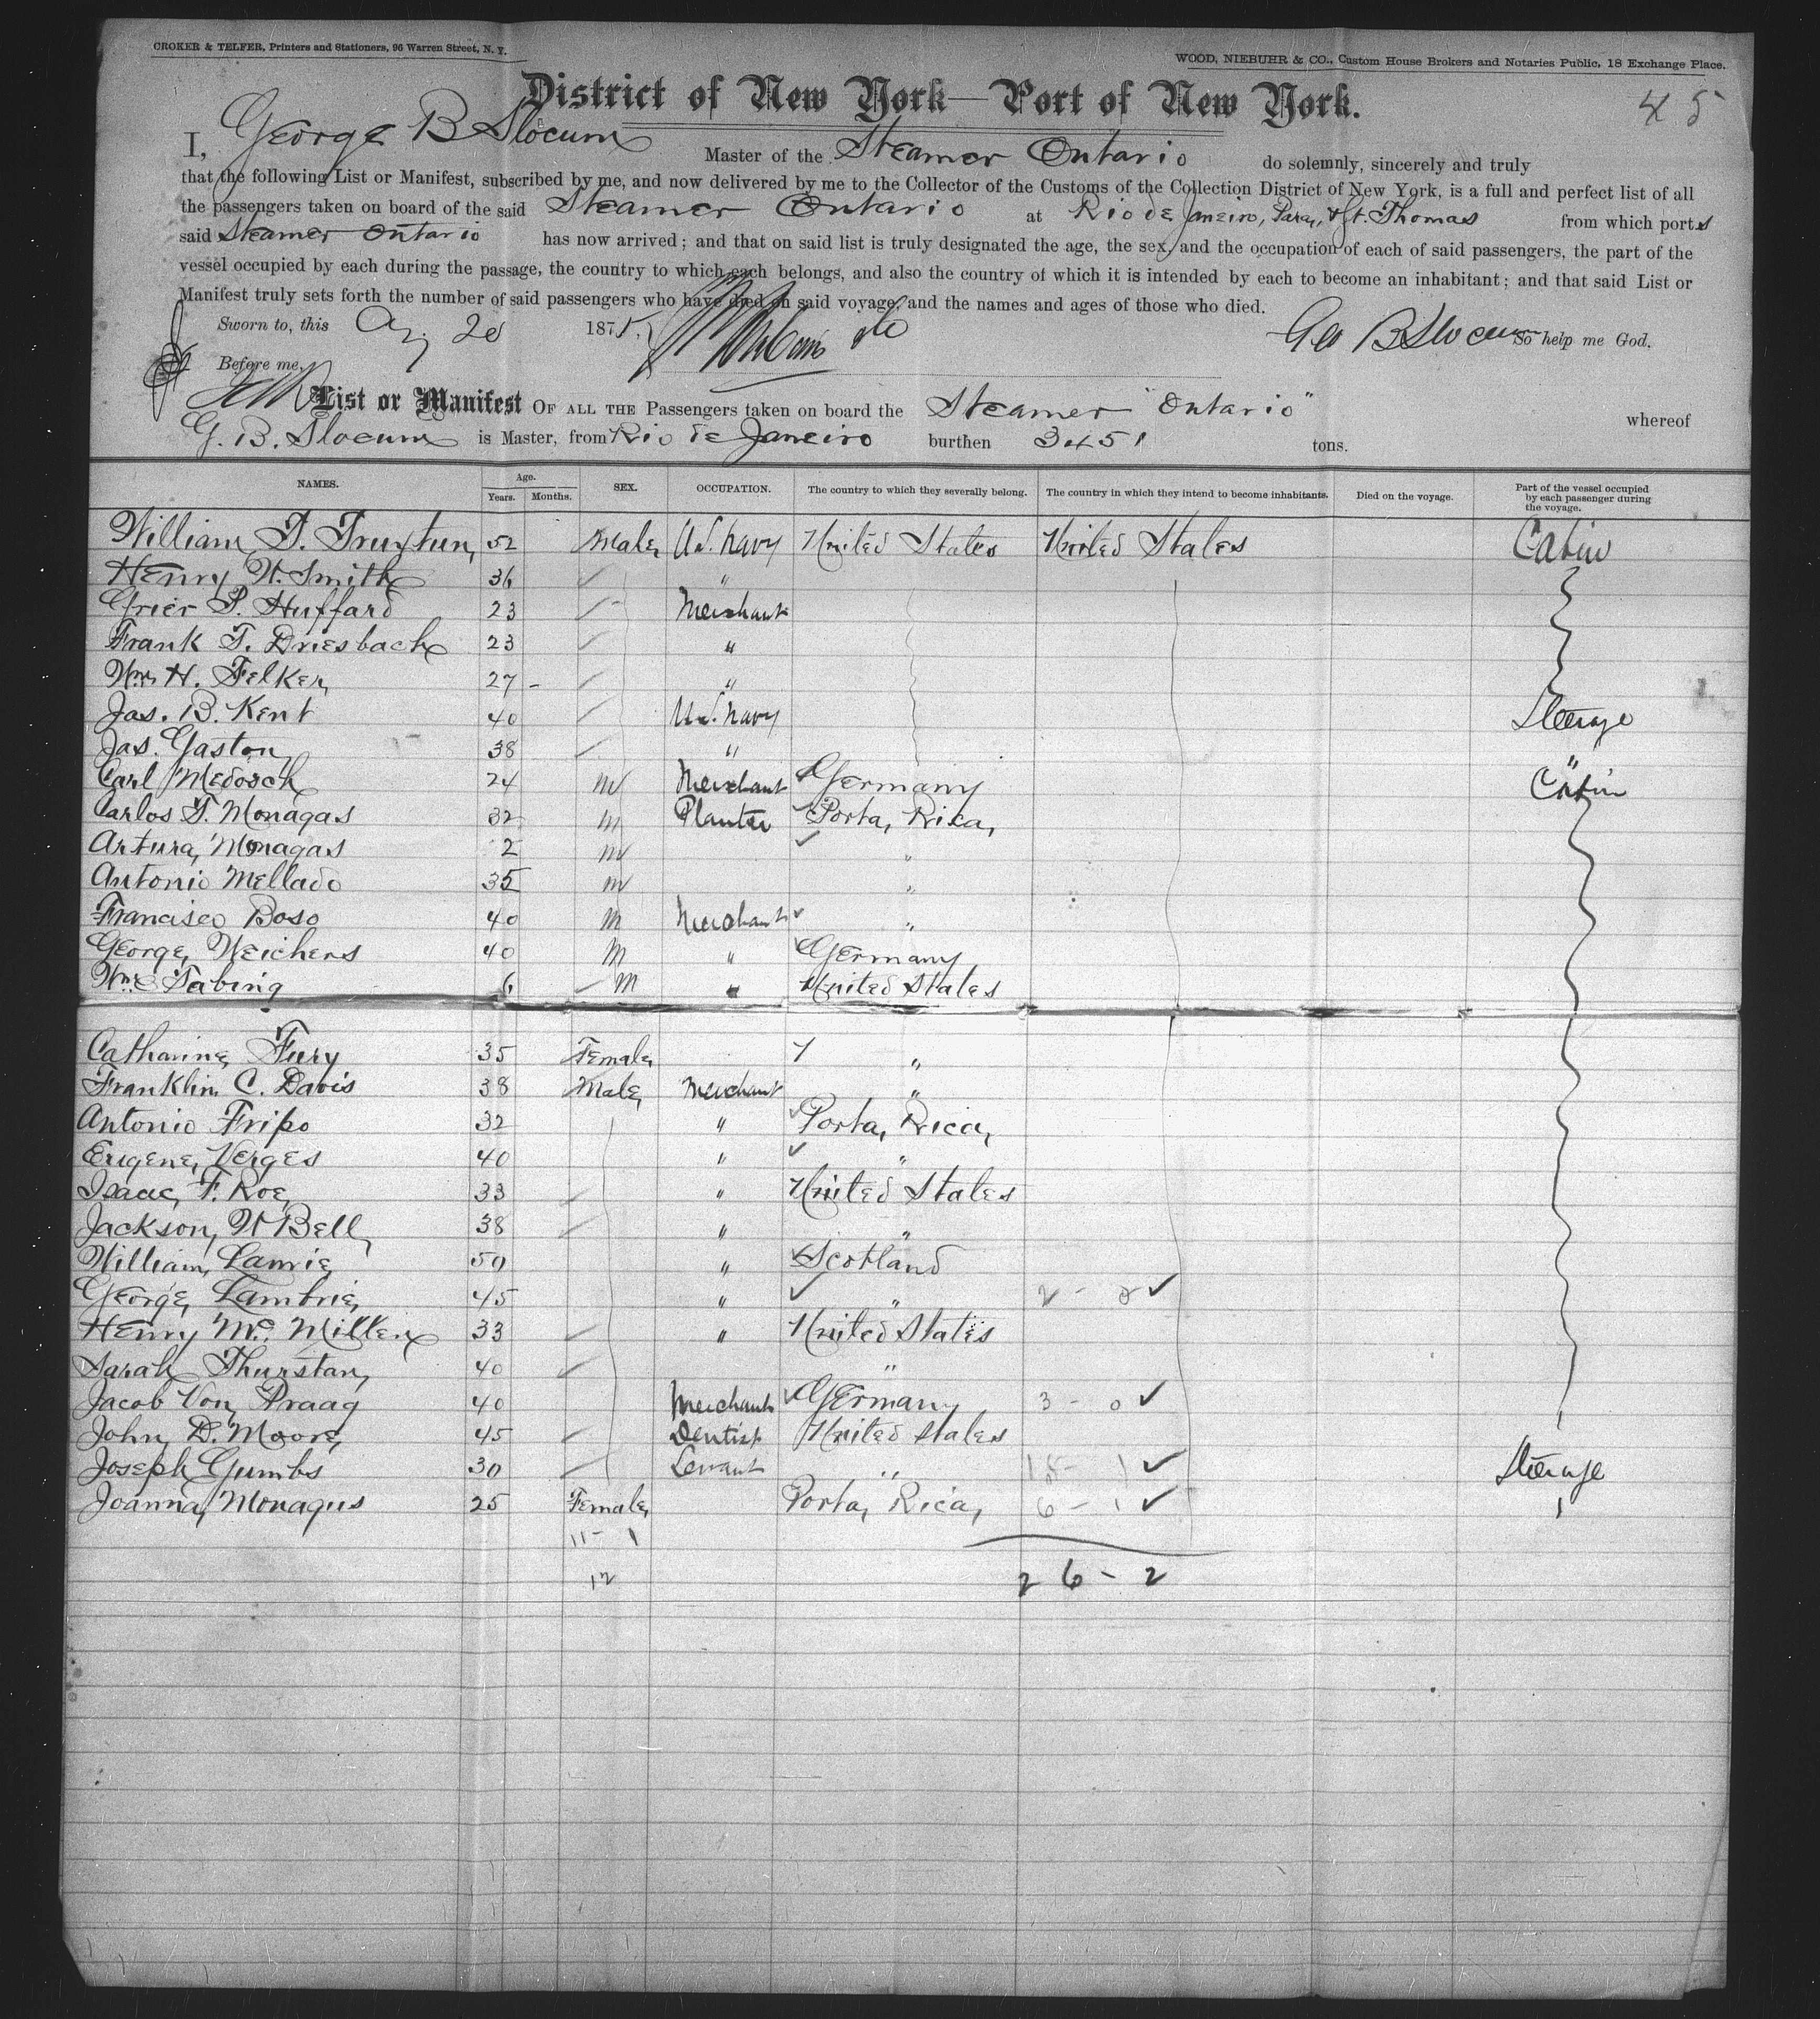 CROKER & TELFER, Printers and Stationers, 96 Warren Street, N. Y.
WOOD, NIEBUHR & CO., Custom House Brokers and Notaries Public, 18 Exchange Place.
District of New York—Port of New York.
45
I, George B Slocum Master of the Steamer Ontario do solemnly, sincerely and truly
that the following List or Manifest, subscribed by me, and now delivered by me to the Collector of the Customs of the Collection District of New York, is a full and perfect list of all
the passengers taken on board of the said Steamer Ontario at Rio de Janeiro, Para, & St. Thomas from which ports
said Steamer Ontario has now arrived; and that on said list is truly designated the age, the sex, and the occupation of each of said passengers, the part of the
vessel occupied by each during the passage, the country to which each belongs, and also the country of which it is intended by each to become an inhabitant; and that said List or
Manifest truly sets forth the number of said passengers who have died on said voyage, and the names and ages of those who died.
Sworn to, this Aug 20 1875. Geo B Slocum So help me God.
Before me,
List or Manifest OF ALL THE Passengers taken on board the Steamer "Ontario" whereof
G. B. Slocum is Master, from Rio de Janeiro burthen 3451 tons.
NAMES. Age. Years. Months. SEX. OCCUPATION. The country to which they severally belong. The country in which they intend to become inhabitants. Died on the voyage. Part of the vessel occupied by each passenger during the voyage.
William T. Truxtun, 52 Male, U.S. Navy United States United States Cabin
Henry W. Smith 36 "
Grier P. Huffard 23 Merchant
Frank T. Driesbach 23 "
Wm H. Felker, 27 - "
Jas. B. Kent 40 U.S. Navy Steerage
Jas. Gaston, 38 " "
Carl Medorch 24 M Merchant Germany Cabin
Carlos T. Monagas 32 M Planter Porta, Rica,
Artura, Monagas 2 M "
Antonio Mellado 35 M "
Francisco Boso 40 M Merchant "
George, Weichers 40 M " Germany
Wm Tabing 6 M " United States
Catharine, Fury 35 Female, "
Franklin C. Davis 38 Male, Merchant "
Antonio Fripo 32 " Porta, Rica,
Eugene, Verges 40 " "
Isaac, F. Roe, 33 " United States
Jackson, W Bell, 38 " "
William, Lamrie, 50 " Scotland
George, Lambrie, 45 " " 2 - 0 ✓
Henry Mc. Millen 33 " United States
Sarah Thurstan, 40 "
Jacob Von Praag 40 Merchant Germany 3 - 0 ✓
John D. Moore, 45 Dentist United States
Joseph Gumbs 30 Servant " 15 - 1 ✓ Steerage
Joanna, Monagus 25 Female, Porta, Rica, 6 - 1 ✓
11 - 1
12 26 - 2